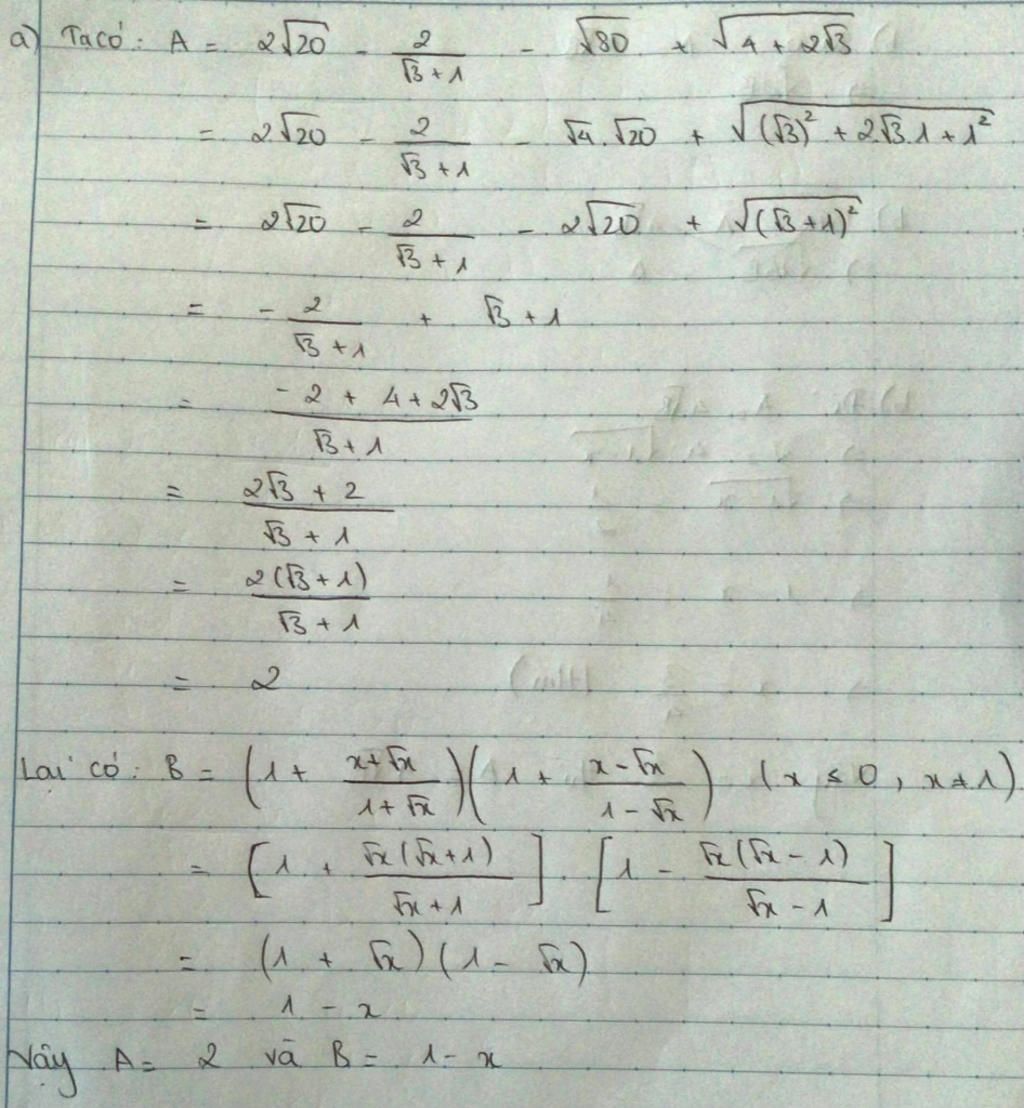 a) Ta có: A = 2√20 - 2/(√3 + 1) - √80 + √(4 + 2√3)
= 2√20 - 2/(√3 + 1) - √4.√20 + √((√3)² + 2√3.1 + 1²)
= 2√20 - 2/(√3 + 1) - 2√20 + √((√3 + 1)²)
= - 2/(√3 + 1) + √3 + 1
= (- 2 + 4 + 2√3)/(√3 + 1)
= (2√3 + 2)/(√3 + 1)
= 2(√3 + 1)/(√3 + 1)
= 2
Lại có: B = (1 + (x + √x)/(1 + √x))(1 + (x - √x)/(1 - √x)) (x ≤ 0, x ≠ 1)
= [1 + √x(√x + 1)/(√x + 1)] . [1 - √x(√x - 1)/(√x - 1)]
= (1 + √x)(1 - √x)
= 1 - x
Vậy A = 2 và B = 1 - x